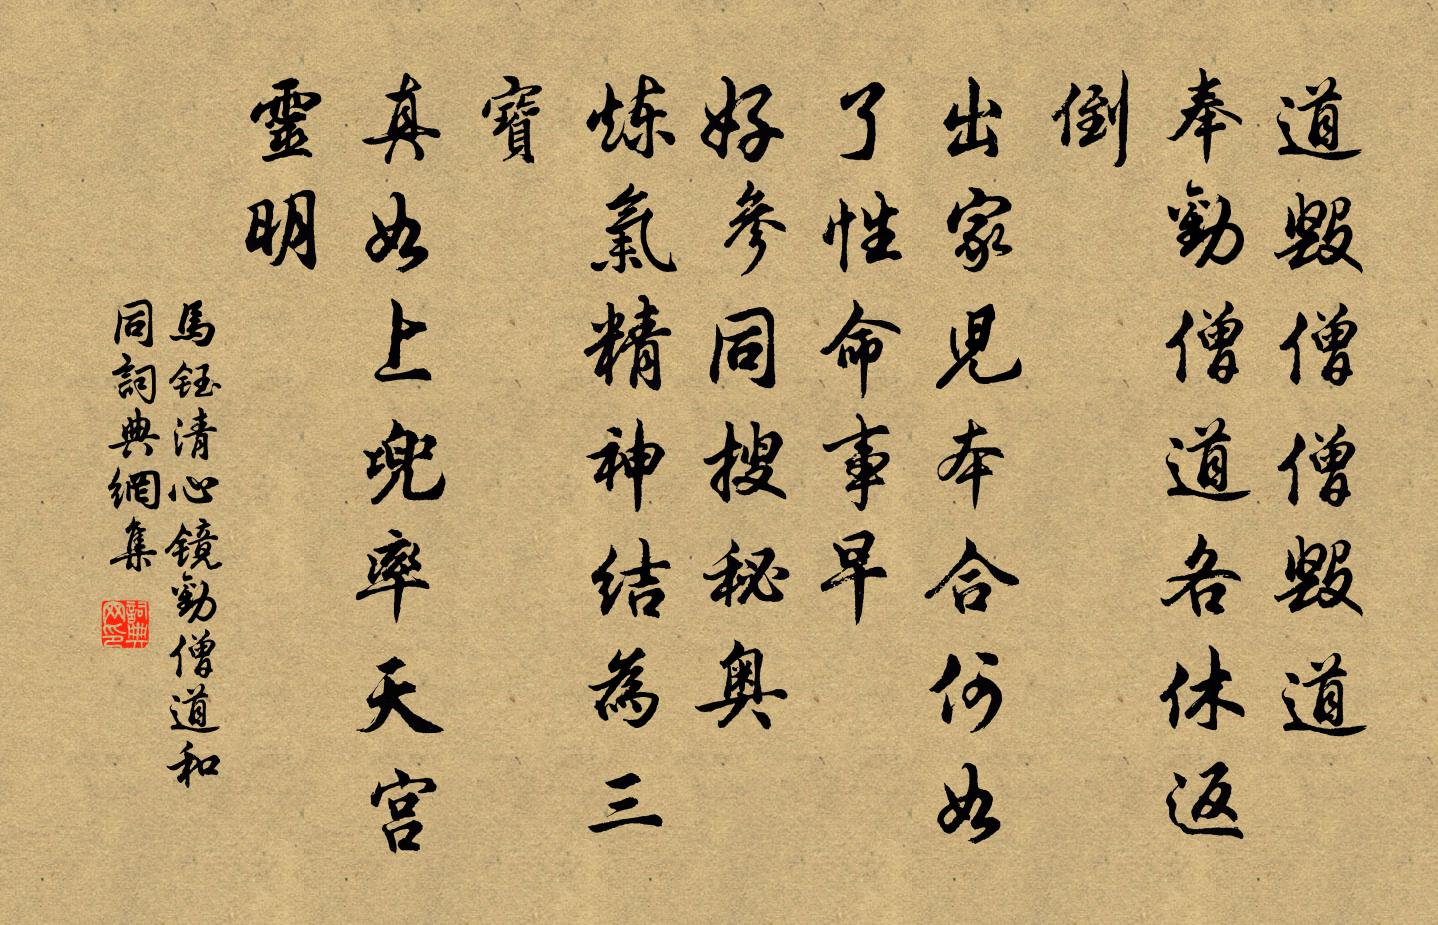 道毀僧僧毀道
奉勸僧道各休返
倒
出家児本合何如
了性命事早
好參同搜秘奥
炼氣精神结為三
寶
真如上兜率天宫
靈明
馬鈺清心镜勸僧道和
同詞典網集
詞典
网印